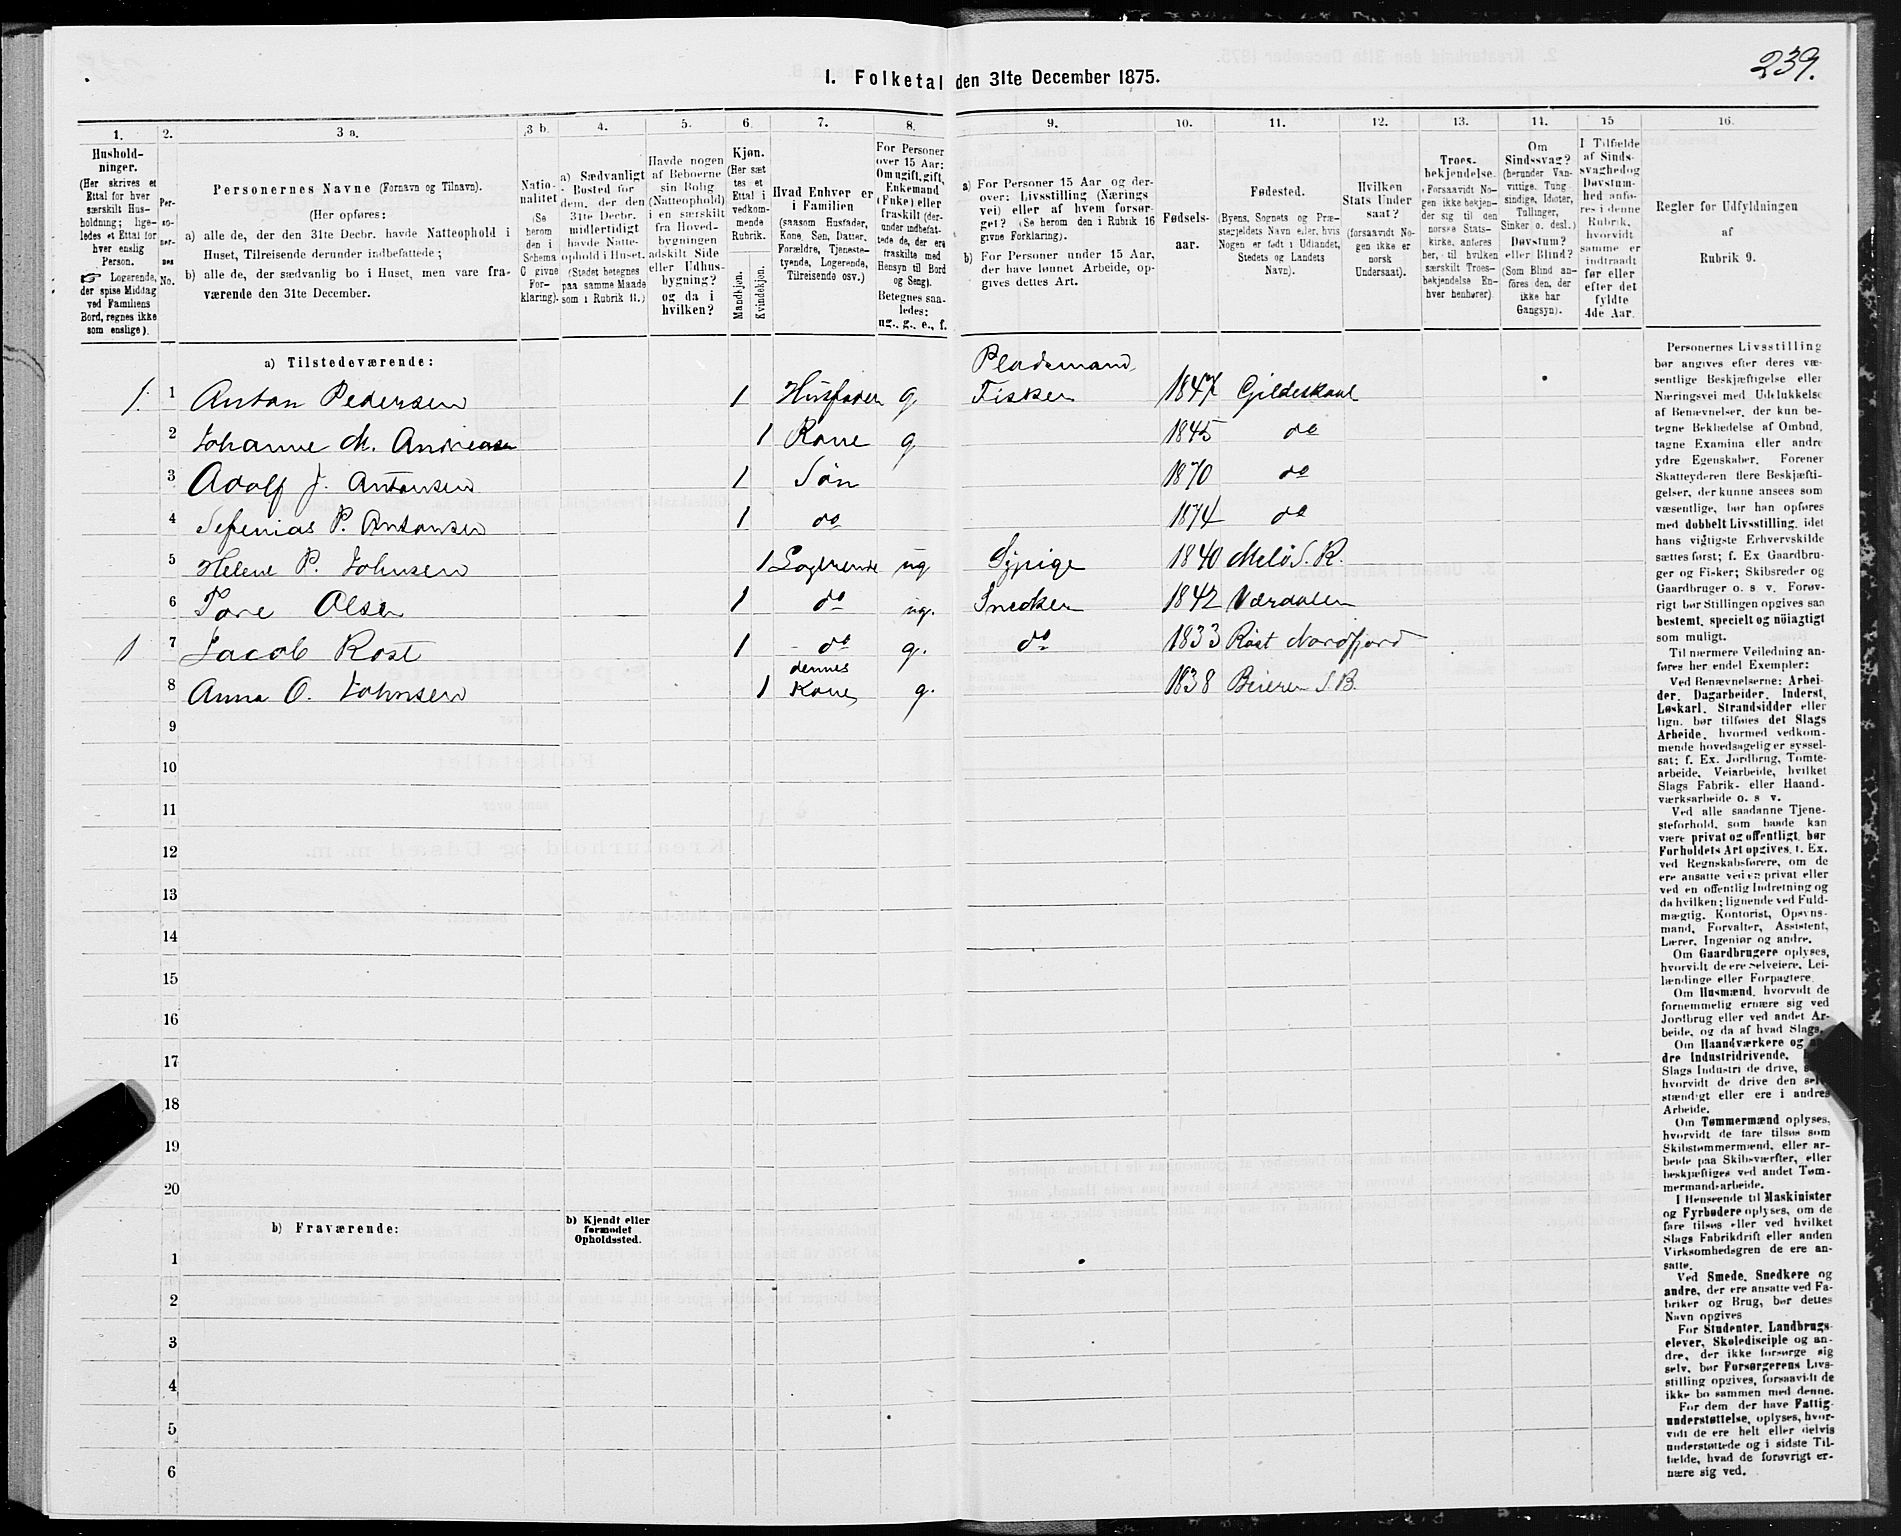 239.
1. Folketal den 31te December 1875.
1. 2. 3 a. 3 b. 4. 5. 6. 7. 8. 9. 10. 11. 12. 13. 14. 15 16.
Hushold-
ninger.
(Her skrives et
Ettal for hver
særskilt Hus-
holdning; lige-
ledes et Ettal for
hver enslig
Person.
☞ Logerende,
der spise Middag
ved Familiens
Bord, regnes ikke
som enslige).
Per-
so-
ner-
nes
No.
Personernes Navne (Fornavn og Tilnavn).
(Her opføres:
a) alle de, der den 31te Decbr. havde Natteophold i
Huset, Tilreisende derunder indbefattede;
b) alle de, der sædvanlig bo i Huset, men vare fra-
værende den 31te December.
Natio-
nalitet
(Se
herom
den i
Schema
C givne
For-
klaring).
a) Sædvanligt
Bosted for
dem, der den
31te Decbr.
midlertidigt
havde Natte-
ophold i Huset.
(Stedet betegnes
paa samme Maade
som i Rubrik 11.)
Havde nogen
af Beboerne
sin Bolig
(Natteophold)
i en særskilt
fra Hoved-
bygningen
adskilt Side
eller Udhus-
bygning?
og da i
hvilken?
Kjøn.
(Her sæt
tes et
Ettal i
vedkom-
mende
Rubrik.
Mandkjøn.
Kvindekjøn.
Hvad Enhver er
i Familien
(saasom Husfader,
Kone, Søn, Datter,
Forældre, Tjeneste-
tyende, Logerende,
Tilreisende osv.)
For Personer
over 15 Aar:
Om ugift, gift,
Enkemand
(Enke) eller
fraskilt (der-
under indbefat-
tede de, der ere
fraskilte med
Hensyn til Bord
og Seng).
Betegnes saa-
ledes:
ug., g., e., f.
a) For Personer 15 Aar og der-
over: Livsstilling (Nærings
vei) eller af hvem forsør-
get? (Se herom den i Rubrik 16
givne Forklaring).
b) For Personer under 15 Aar,
der have lønnet Arbeide, op-
gives dettes Art.
Fødsels-
aar.
Fødested.
(Byens, Sognets og Præ-
stegjeldets Navn eller, hvis
Nogen er født i Udlandet,
Stedets og Landets
Navn).
Hvilken
Stats Under
saat?
(forsaavidt No-
gen ikke er
norsk
Undersaat).
Troes-
bekjendelse.
(Forsaavidt No-
gen ikke bekjen-
der sig til den
norske Stats-
kirke, anføres
her, til hvilken
særskilt Troes-
bekjendelse En-
hver henhører).
Om
Sindssvag?
(herunder Van-
vittige, Tung-
sindige, Idioter,
Tullinger,
Sinker o. desl.)
Døvstum?
eller Blind?
(Som Blind an-
føres den, der
ikke har
Gangsyn).
I Tilfælde
af Sinds-
svaghed og
Døvstum-
hed anfø-
res i denne
Rubrik,
hvorvidt
samme er
indtraadt
før eller
efter det
fyldte
4de Aar.
Regler for Udfyldningen
af
Rubrik 9.
a) Tilstedeværende:
Pladsmand
1. 1 Anton Pedersen 1 Husfader g Fisker 1847 Gildeskaal
2 Johanne M. Andreasen 1 Kone g 1845 do
3 Adolf J. Antonsen 1 Søn 1870 do
4 Sefenias P. Antonsen 1 do 1874 do
5 Helene P. Johnsen 1 Logerende ug Sypige 1840 Melø S. R.
6 Tore Olsen 1 do ug. Snedker 1842 Værdalen
1 7 Jacob Rost 1 do g. do 1833 Røst Nordfjord
dennes
8 Anna O. Johnsen 1 Kone g. 1838 Beieren S B.
9
10
11
12
13
14
15
16
17
18
19
20
b) Fraværende:
b) Kjendt eller
formodet
Opholdssted.
1
2
3
4
5
6
Personernes Livsstilling
bør angives efter deres væ-
sentlige Beskjæftigelse eller
Næringsvei med Udelukkelse
af Benævnelser, der kun be-
tegne Beklædelse af Ombud,
tagne Examina eller andre
ydre Egenskaber. Forener
Skatteyderen flere Beskjæfti-
gelser, der kunne ansees som
væsentlige, bør han opføres
med dobbelt Livsstilling, idet
hans vigtigste Erhvervskilde
sættes først; f. Ex Gaardbru-
ger og Fisker; Skibsreder og
Gaardbruger o. s v. Forøv-
rigt bør Stillingen opgives saa
bestemt, specielt og nöiagtigt
som muligt.
Til nærmere Veiledning an-
føres her endel Exempler:
Ved Benævnelserne: Arbei-
der, Dagarbeider, Inderst,
Løskarl, Strandsidder eller
lign. bør tilføies det Slags
Arbeide, hvormed vedkom-
mende hovedsagelig er syssel-
sat; f. Ex. Jordbrug, Tomte-
arbeide, Veiarbeide, hvilket
Slags Fabrik- eller Haand-
værksarbeide o. s v.
Ved alle saadanne Tjene-
steforhold, som baade kan
være privat og offentligt, bør
Forholdets Art opgives, f. Ex.
ved Regnskabsførere, om de
ere ansatte ved en privat eller
ved en offentlig Indretning og
da hvilken; lignende ved Fuld-
mægtig, Kontorist, Opsyns-
mand, Forvalter, Assistent,
Lærer, Ingeniør og andre.
Om Gaardbrugere oplyses,
hvorvidt de ere Selveiere, Lei-
lændinge eller Forpagtere.
Om Husmænd, hvorvidt de
fornemmelig ernære sig ved
Jordbrug eller ved andet Ar-
beide, og da af hvad Slags.
Om Haandværkere og
dre Industridrivende,
Slags Industri de drive,
hvorvidt de drive den
stændigt eller ere i andres
Arbeide.
Om Tømmermænd oplyses,
hvorvidt de fare tilsøs som
Skibstømmermænd, eller ar-
beide paa Skibsværfter, eller
beskjæftiges ved andet Tøm-
mermandsarbeide.
I Henseende til Maskinister
og Fyrbødere oplyses, om de
fare tilsøs eller ved hvilket
Slags Fabrikdrift eller anden
Virksomhedsgren de ere an-
satte.
Ved Smede, Snedkere og
andre, der ere ansatte ved Fa-
briker og Brug, bør dettes
Navn opgives
For Studenter, Landbrugs-
elever, Skoledisciple og an-
dre, der ikke forsørge sig
selv, bør Forsørgerens Livs-
stilling opgives, forsaavidt de
ikke bo sammen med denne.
For dem der have Fattig-
understøttelse, oplyses, hvor-
vidt de ere helt eller delvis
understøttede og i sidste Til-
fælde, hvad de forøvrigt er-
nære sig ved.